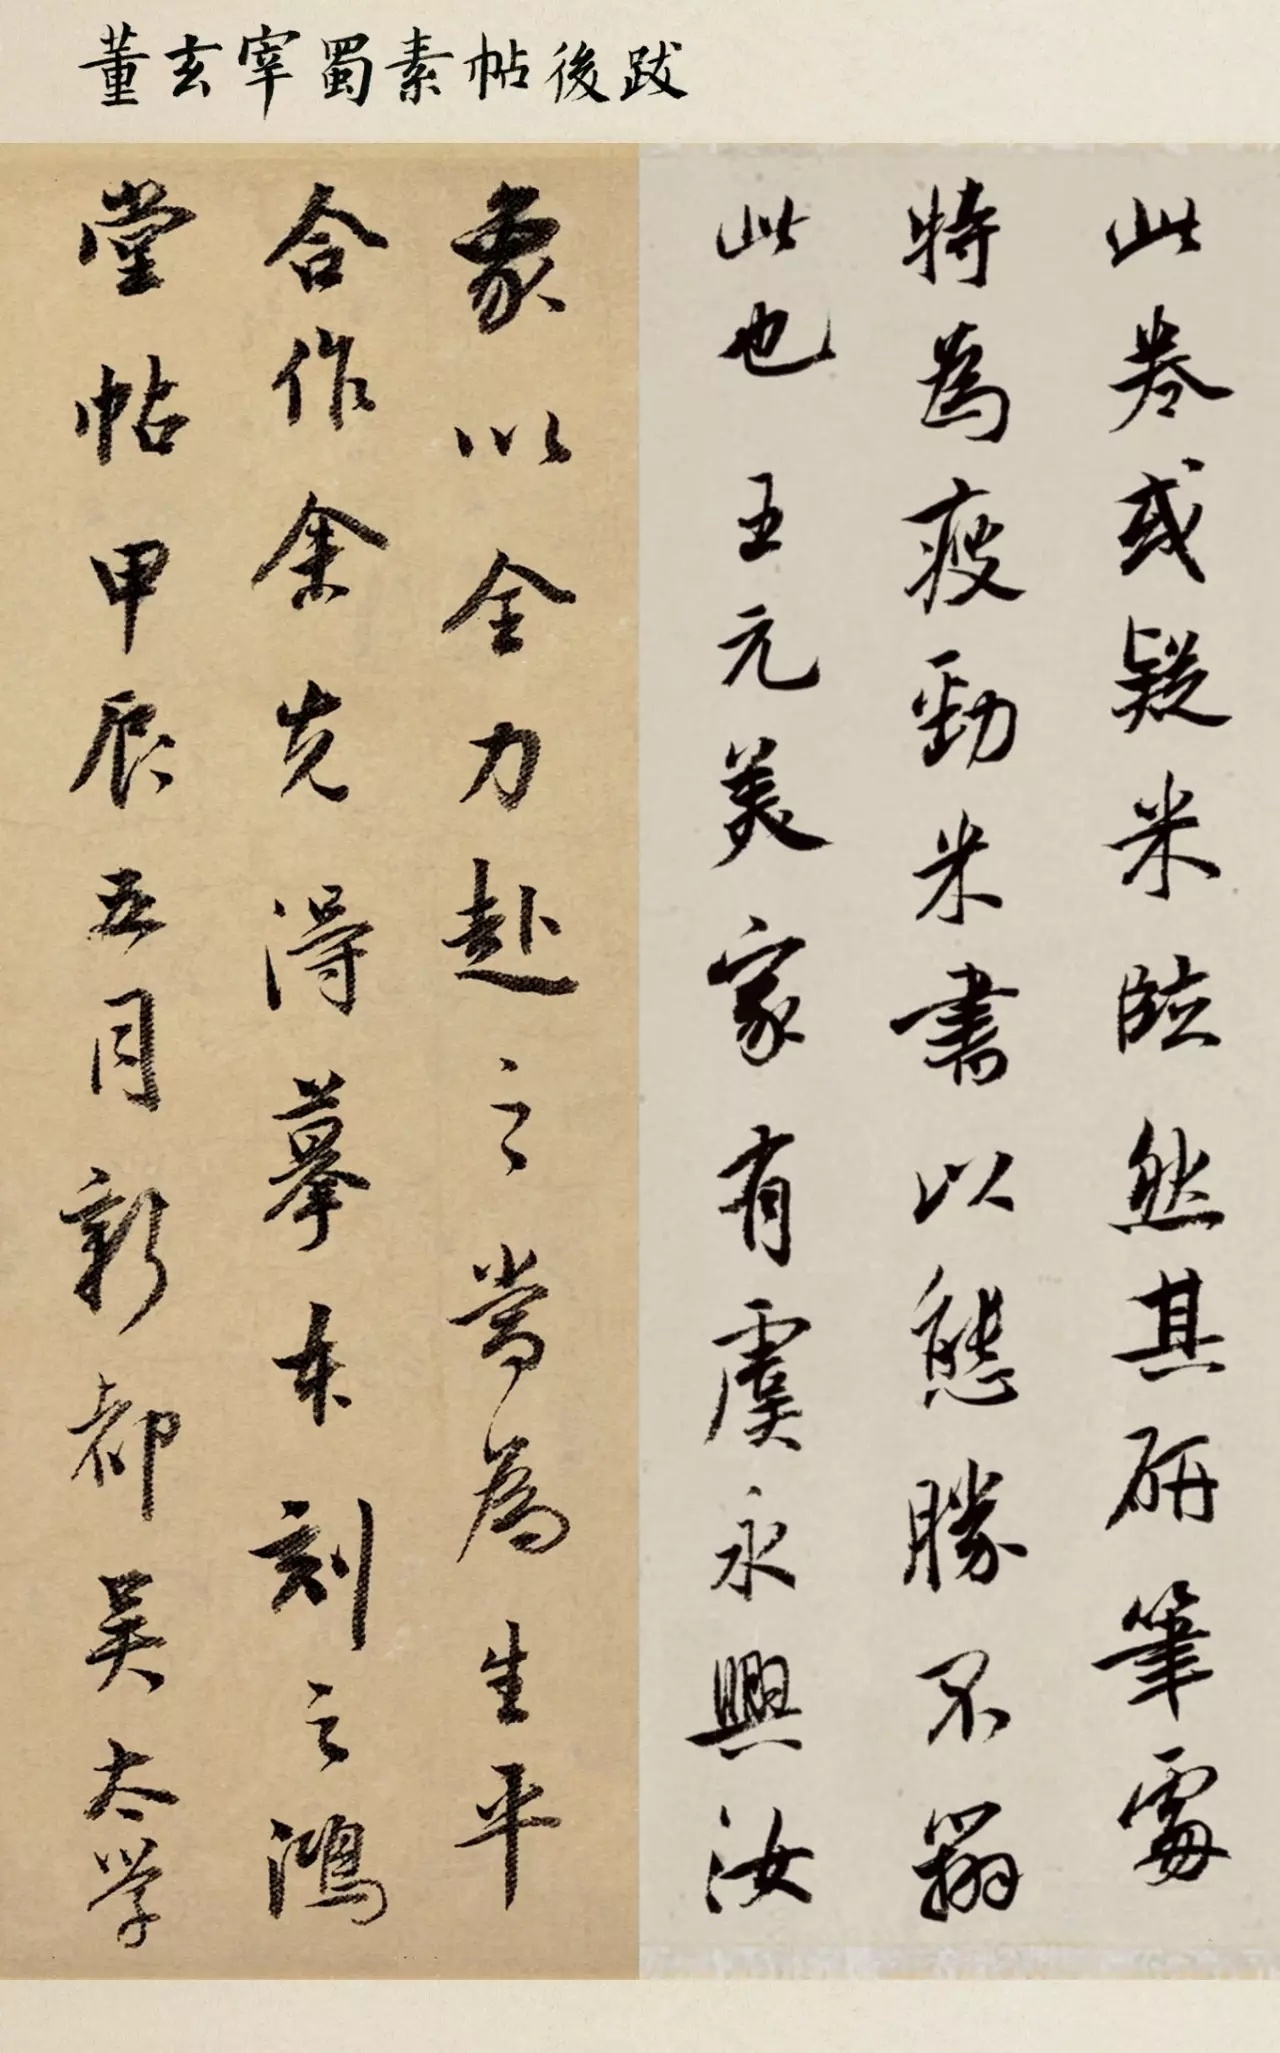 董玄宰蜀素帖後跋
此卷或疑米臨然其研筆處
特為瘦勁米書以態勝不
此也 王元美家有虞永興汝
象以全力赴之當為生平
合作余先得摹本刻之鴻
堂帖甲辰五月新都吳太學